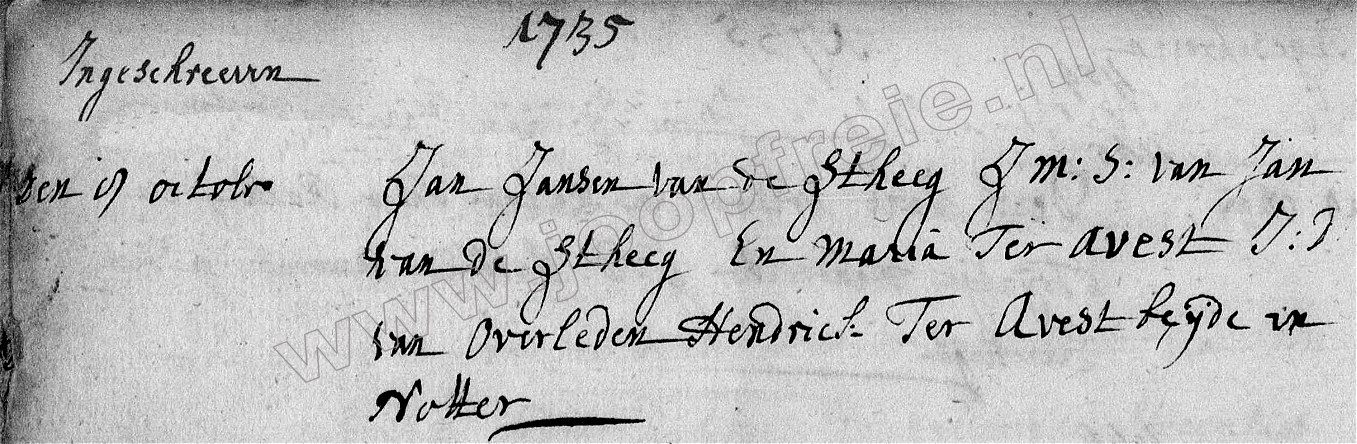 1735
Ingeschreevn
den octobr Jan Jansen van de Stheeg J m: S: van Jan
van de Stheeg En Maria Ter avest J: D
van overleden Hendrick Ter Avest beÿde in
Notter
www.joopfreie.nl